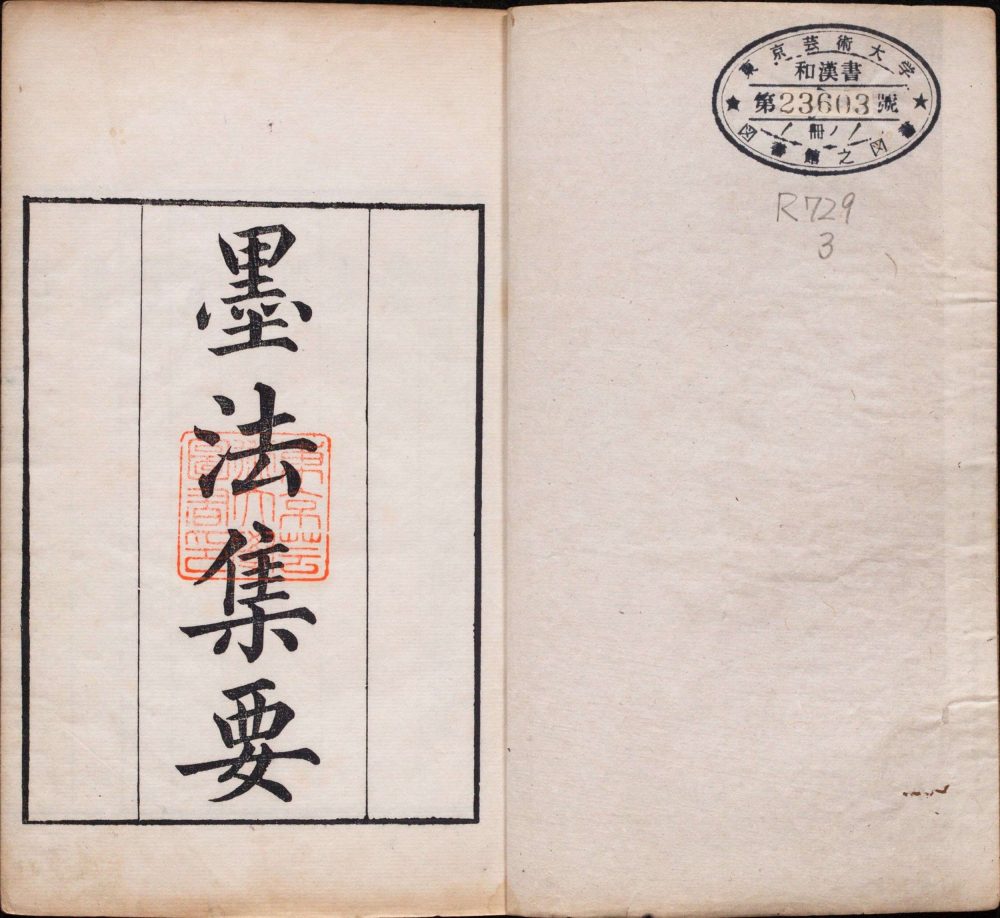 東京芸術大学
和漢書
第23603號
1冊ノ1
図書館之図書
R729
3
墨法集要